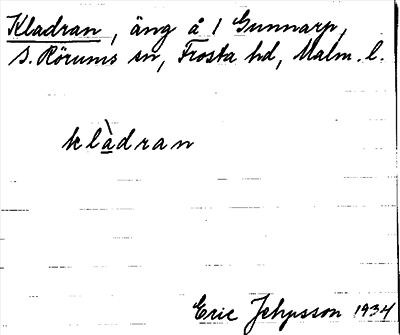 Kladran, äng å 1 Gunnarp,
S. Rörums sn, Frosta hd, Malm. l.
klàdran
Eric Jepsson 1934